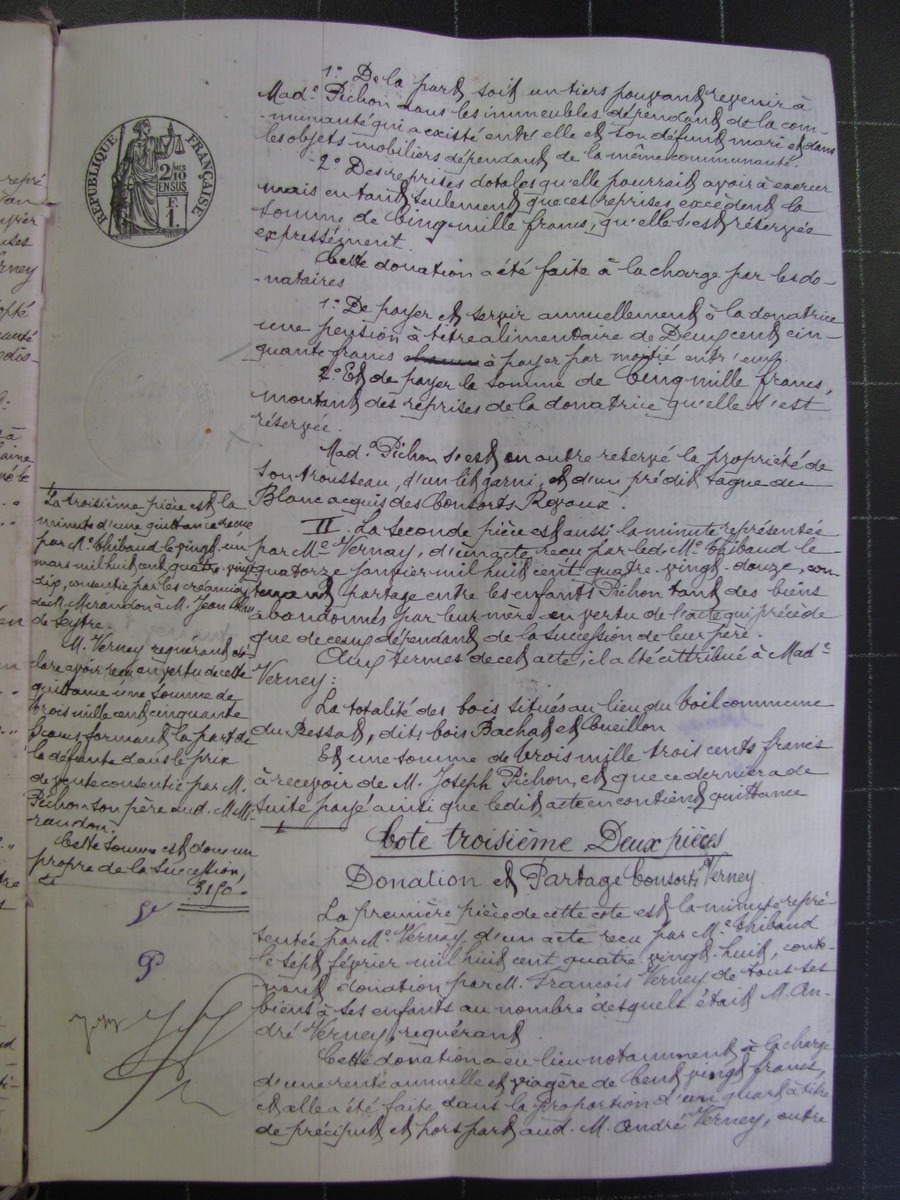 RÉPUBLIQUE FRANÇAISE
2/10 MES
EN SUS
F.
1
1° De la part soit un tiers pouvant revenir à
Made Pichon dans les immeubles dépendant de la com-
-munauté qui a existé entre elle et son défunt mari et dans
les objets mobiliers dépendant de la même communauté.
2° Des reprises dotales qu'elle pourrait avoir à exercer
mais en tant seulement que ces reprises excèdent la
somme de Cinq mille francs, qu'elle s'est réservée
expressément.
Cette donation a été faite à la charge par les do-
-nataires
1° De payer et servir annuellement à la donatrice
une pension à titre alimentaire de Deux cent cin-
quante francs à payer par moitié entr'eux.
2° Et de payer la somme de Cinq mille francs,
montant des reprises de la donatrice qu'elle s'est
réservée.
Made Pichon s'est en outre réservé la propriété de
son trousseau, d'un lit garni, et d'un prédit tagne du
Blanc acquis des Consorts Royaux.
II. La seconde pièce est aussi la minute représentée
par Me Vernay, d'un acte reçu par led. Me Thibaud le
quatorze janvier mil huit cent quatre-vingt-douze, con
tenant partage entre les enfants Pichon tant des biens
abandonnés par leur mère en vertu de l'acte qui précède
que de ceux dépendant de la succession de leur père.
Aux termes de cet acte, il a été attribué à Made
Verney:
La totalité des bois situés au lieu du Toil commune
du Bessat, dits bois Bachat et Cueillon
Et une somme de trois mille trois cents francs
à recevoir de M. Joseph Pichon, et que ce dernier a de
suite payé ainsi que ledit acte en contient quittance
La troisième pièce est la
minute d'une quittance reçue
par Me Thibaud le vingt un
mars mil huit cent quatre-vingt
dix, consentie par les créanciers
de M. Mirandon à M. Jean
de Seytre.
M. Verney requérant dé-
clare avoir reçu en vertu de cette
quittance une somme de
trois mille cent cinquante
francs formant la part de
la défunte dans le prix
de vente consentie par M.
Pichon son père aud. M. Mi-
randon.
Cette somme est donc un
propre de la succession,
ci 3150 -
Cote troisième Deux pièces
Donation et Partage Consorts Verney
La première pièce de cette cote est la minute repré-
sentée par Me Vernay, d'un acte reçu par Me Thibaud
le sept février mil huit cent quatre-vingt-huit, conte-
nant donation par M. François Verney de tous ses
biens à ses enfants au nombre desquels était M. An-
dré Verney, requérant.
Cette donation a eu lieu notamment à la charge
d'une rente annuelle et viagère de Cent vingt francs,
et elle a été faite dans la proportion d'un quart à titre
de préciput et hors part aud. M. André Verney, outre